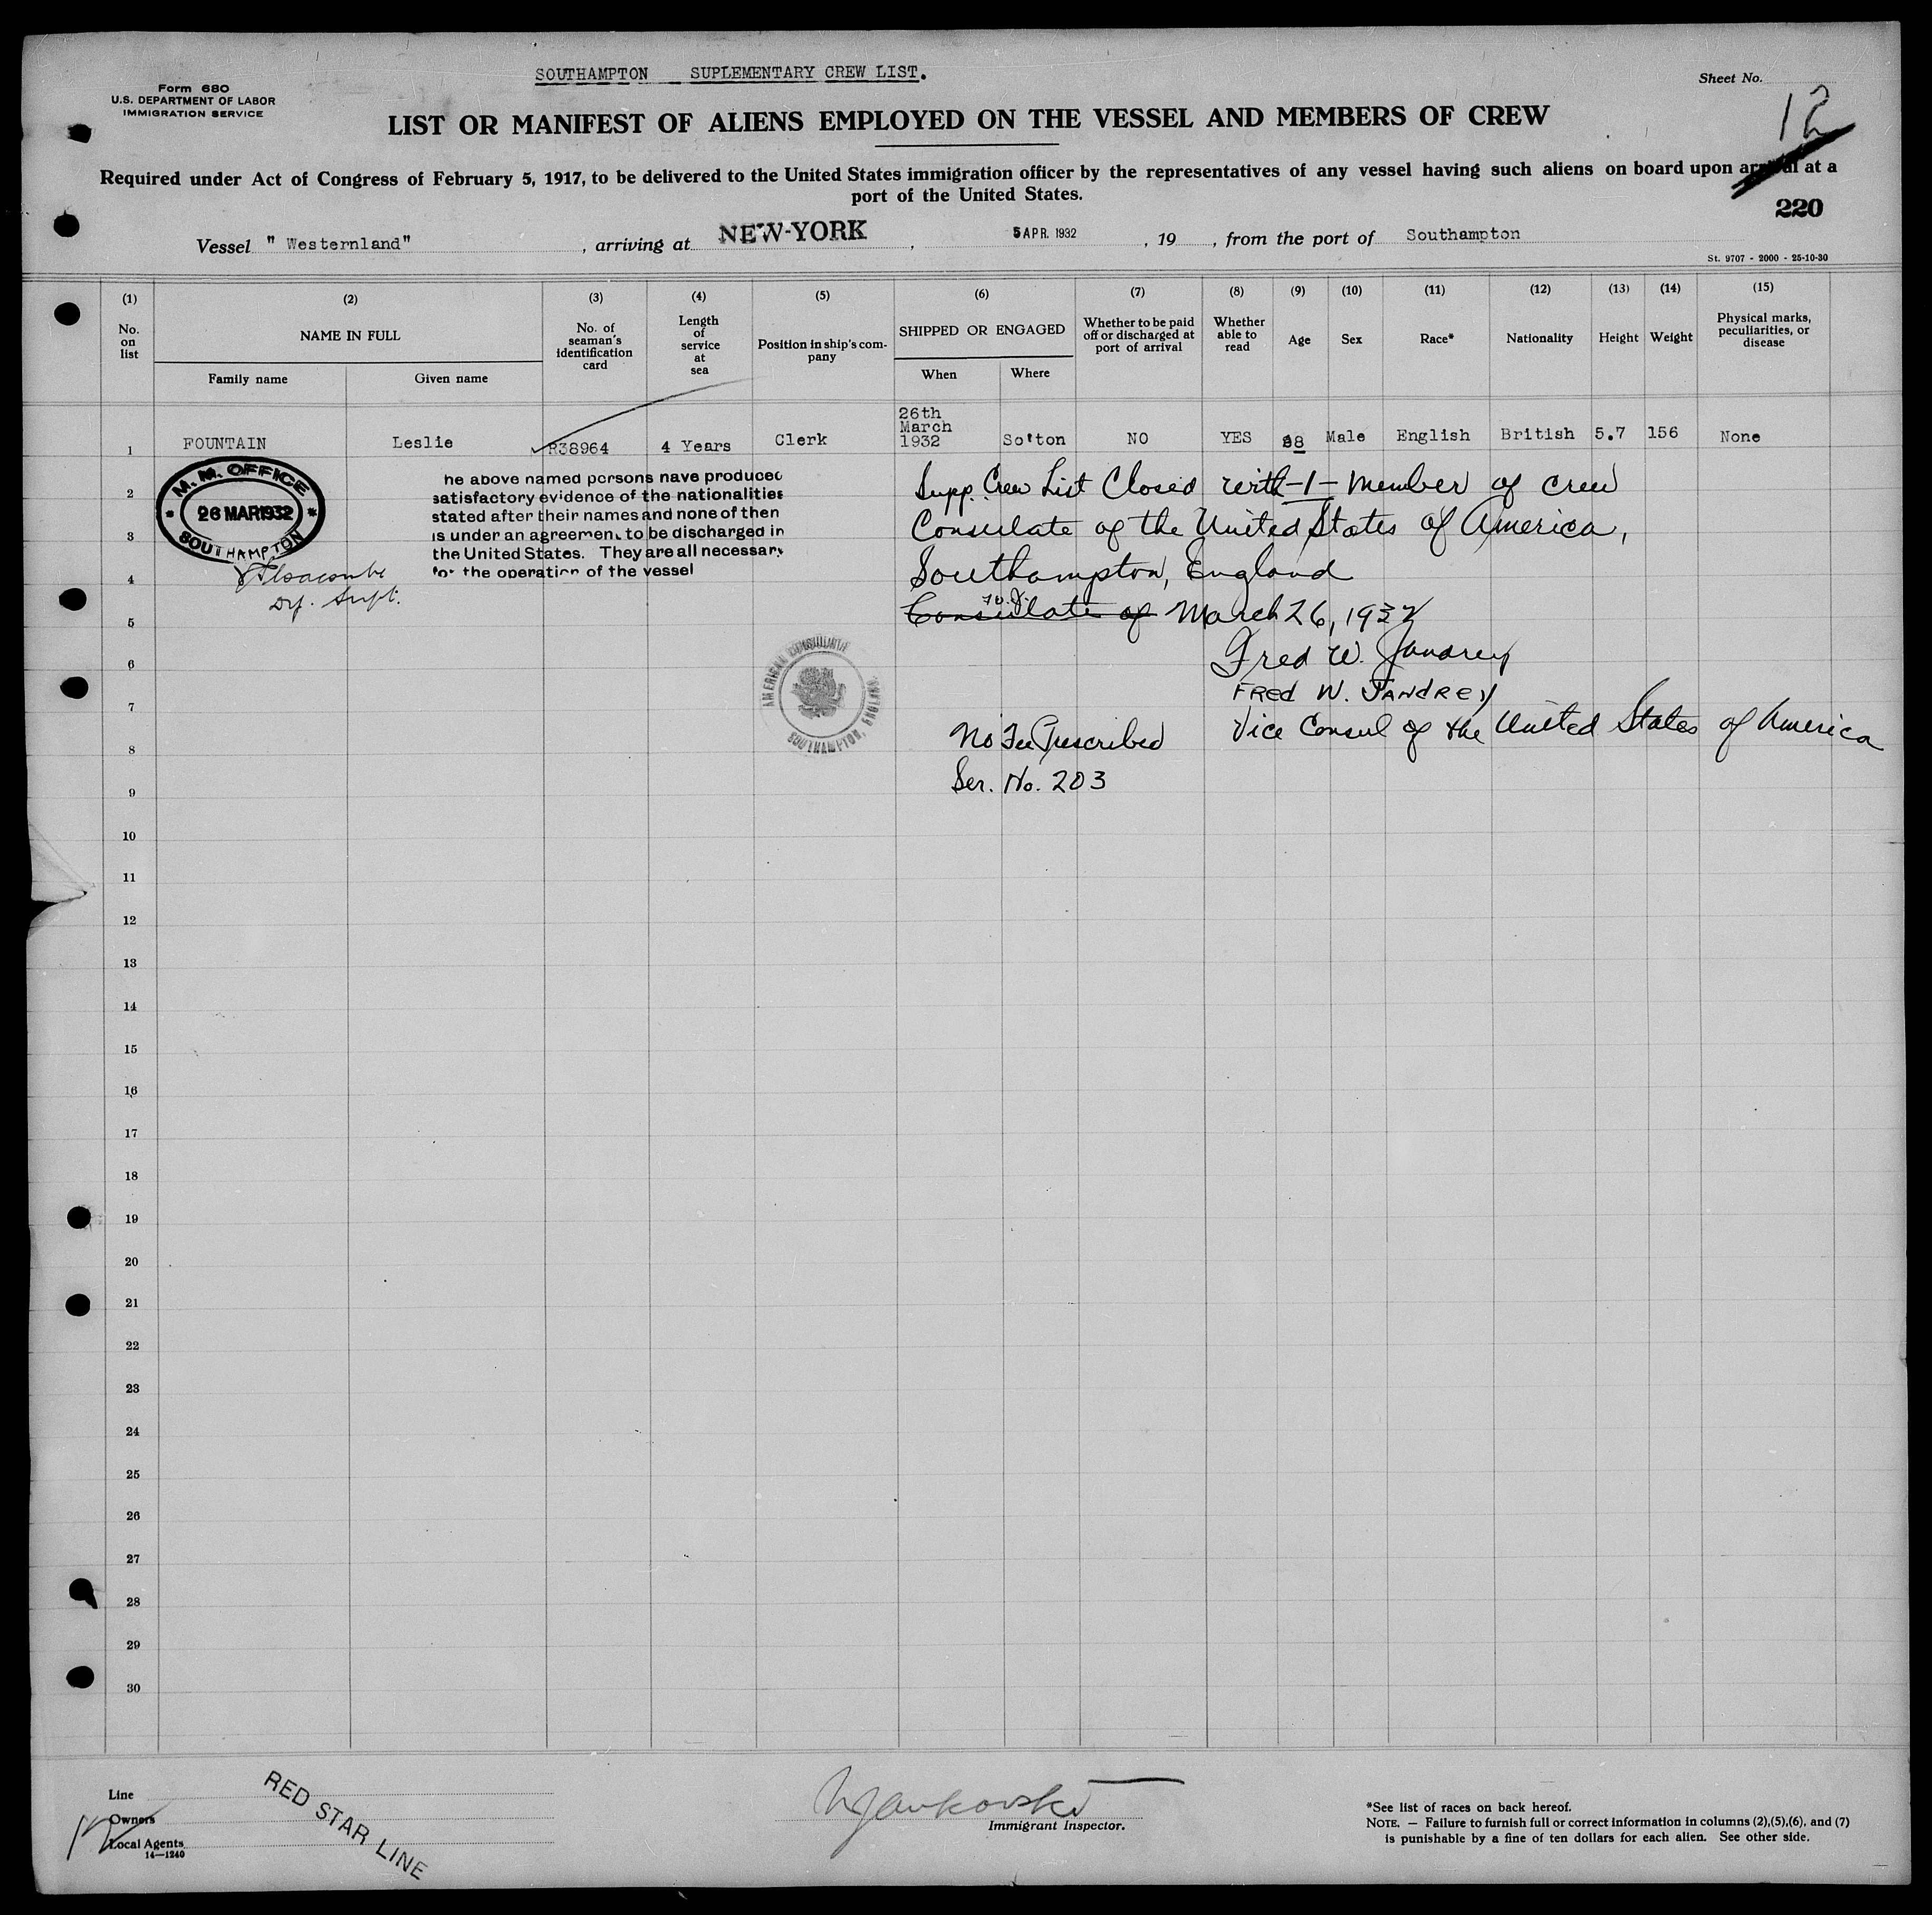 SOUTHAMPTON SUPLEMENTARY CREW LIST.
Sheet No.
12
Form 680
U.S. DEPARTMENT OF LABOR
IMMIGRATION SERVICE
LIST OR MANIFEST OF ALIENS EMPLOYED ON THE VESSEL AND MEMBERS OF CREW
Required under Act of Congress of February 5, 1917, to be delivered to the United States immigration officer by the representatives of any vessel having such aliens on board upon arrival at a
port of the United States.
220
Vessel " Westernland" , arriving at NEW-YORK , 5 APR. 1932 , 19 , from the port of Southampton
St. 9707 - 2000 - 25-10-30
(1) (2) (3) (4) (5) (6) (7) (8) (9) (10) (11) (12) (13) (14) (15)
No. on list
NAME IN FULL
Family name
Given name
No. of seaman's identification card
Length of service at sea
Position in ship's com-pany
SHIPPED OR ENGAGED
When
Where
Whether to be paid off or discharged at port of arrival
Whether able to read
Age
Sex
Race*
Nationality
Height
Weight
Physical marks, peculiarities, or disease
1 FOUNTAIN Leslie R38964 4 Years Clerk 26th March 1932 So'ton NO YES 8 Male English British 5.7 156 None
M.M. OFFICE
26 MAR 1932
SOUTHAMPTON
Dy. Supt.
he above named persons have produced
satisfactory evidence of the nationalities
stated after their names and none of then
is under an agreement to be discharged in
the United States. They are all necessary
for the operation of the vessel
Supp. Crew List Closed with -1- member of crew
Consulate of the United States of America,
Southampton, England
F.W.J.
Consulate of March 26, 1932
Fred W. Jandrey
FRED W. JANDREY
Vice Consul of the United States of America
AMERICAN CONSULATE
SOUTHAMPTON, ENGLAND.
No Fee Prescribed
Ser. No. 203
2
3
4
5
6
7
8
9
10
11
12
13
14
15
16
17
18
19
20
21
22
23
24
25
26
27
28
29
30
Line
Owners
Local Agents
14—1240
12
RED STAR LINE
Immigrant Inspector.
*See list of races on back hereof.
NOTE. — Failure to furnish full or correct information in columns (2),(5),(6), and (7)
is punishable by a fine of ten dollars for each alien. See other side.